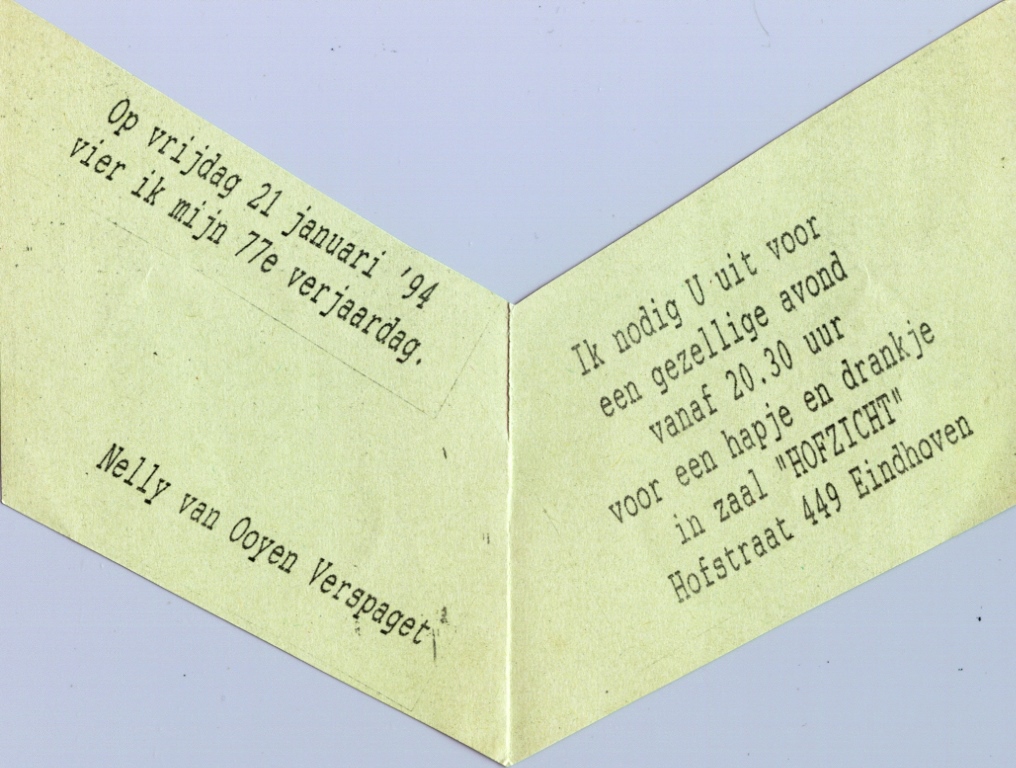 Op vrijdag 21 januari '94
vier ik mijn 77e verjaardag.
Nelly van Ooyen Verspaget
Ik nodig U uit voor
een gezellige avond
vanaf 20.30 uur
voor een hapje en drankje
in zaal "HOFZICHT"
Hofstraat 449 Eindhoven